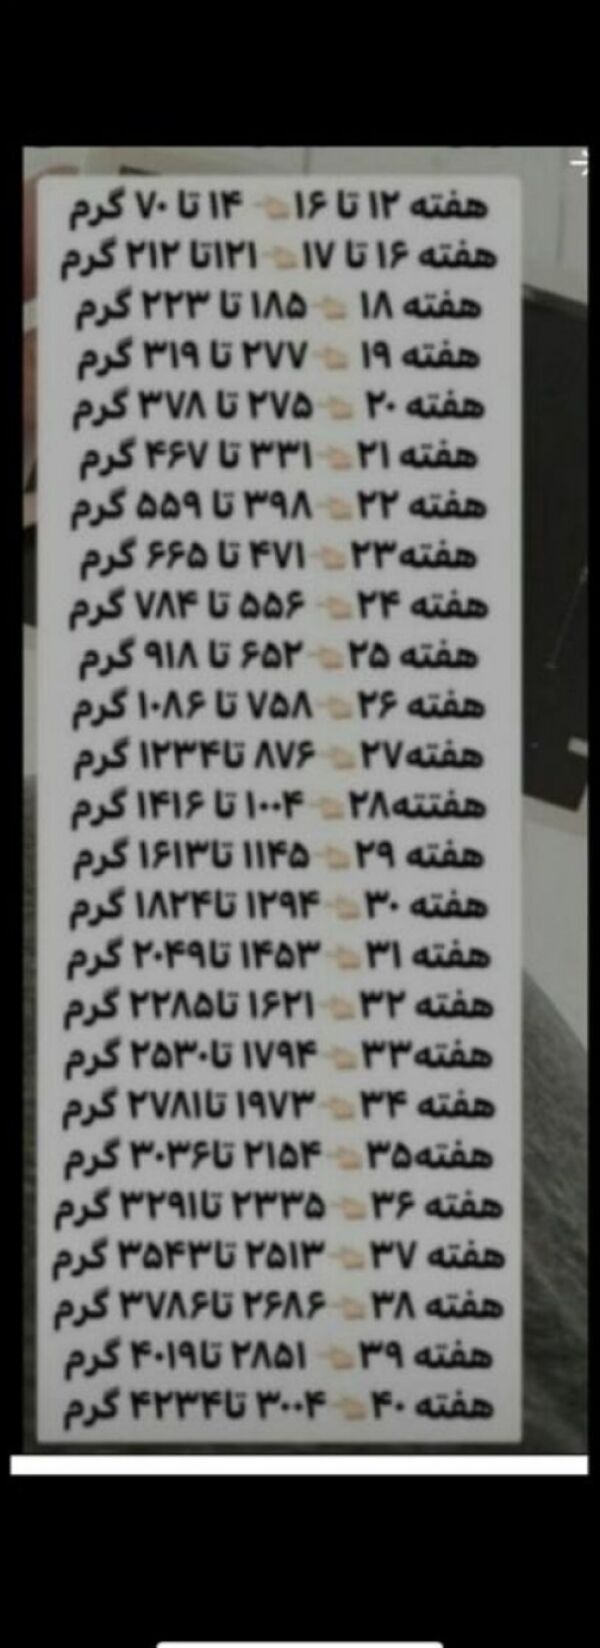 هفته ۱۲ تا ۱۶👈🏻 ۱۴ تا ۷۰ گرم
هفته ۱۶ تا ۱۷👈🏻 ۱۲۱تا ۲۱۲ گرم
هفته ۱۸ 👈🏻 ۱۸۵ تا ۲۲۳ گرم
هفته ۱۹ 👈🏻 ۲۷۷ تا ۳۱۹ گرم
هفته ۲۰ 👈🏻 ۲۷۵ تا ۳۷۸ گرم
هفته ۲۱👈🏻 ۳۳۱ تا ۴۶۷ گرم
هفته ۲۲👈🏻 ۳۹۸ تا ۵۵۹ گرم
هفته۲۳👈🏻 ۴۷۱ تا ۶۶۵ گرم
هفته ۲۴ 👈🏻 ۵۵۶ تا ۷۸۴ گرم
هفته ۲۵👈🏻 ۶۵۲ تا ۹۱۸ گرم
هفته ۲۶👈🏻 ۷۵۸ تا ۱۰۸۶ گرم
هفته۲۷👈🏻 ۸۷۶ تا۱۲۳۴ گرم
هفتته۲۸👈🏻 ۱۰۰۴ تا ۱۴۱۶ گرم
هفته ۲۹👈🏻 ۱۱۴۵ تا۱۶۱۳ گرم
هفته ۳۰👈🏻 ۱۲۹۴ تا۱۸۲۴ گرم
هفته ۳۱👈🏻 ۱۴۵۳ تا۲۰۴۹ گرم
هفته ۳۲👈🏻 ۱۶۲۱ تا۲۲۸۵ گرم
هفته۳۳👈🏻 ۱۷۹۴ تا۲۵۳۰ گرم
هفته ۳۴👈🏻 ۱۹۷۳ تا۲۷۸۱ گرم
هفته۳۵👈🏻 ۲۱۵۴ تا۳۰۳۶ گرم
هفته ۳۶👈🏻 ۲۳۳۵ تا۳۲۹۱ گرم
هفته ۳۷👈🏻 ۲۵۱۳ تا۳۵۴۳ گرم
هفته ۳۸👈🏻 ۲۶۸۶ تا۳۷۸۶ گرم
هفته ۳۹👈🏻 ۲۸۵۱ تا۴۰۱۹ گرم
هفته ۴۰👈🏻 ۳۰۰۴ تا۴۲۳۴ گرم